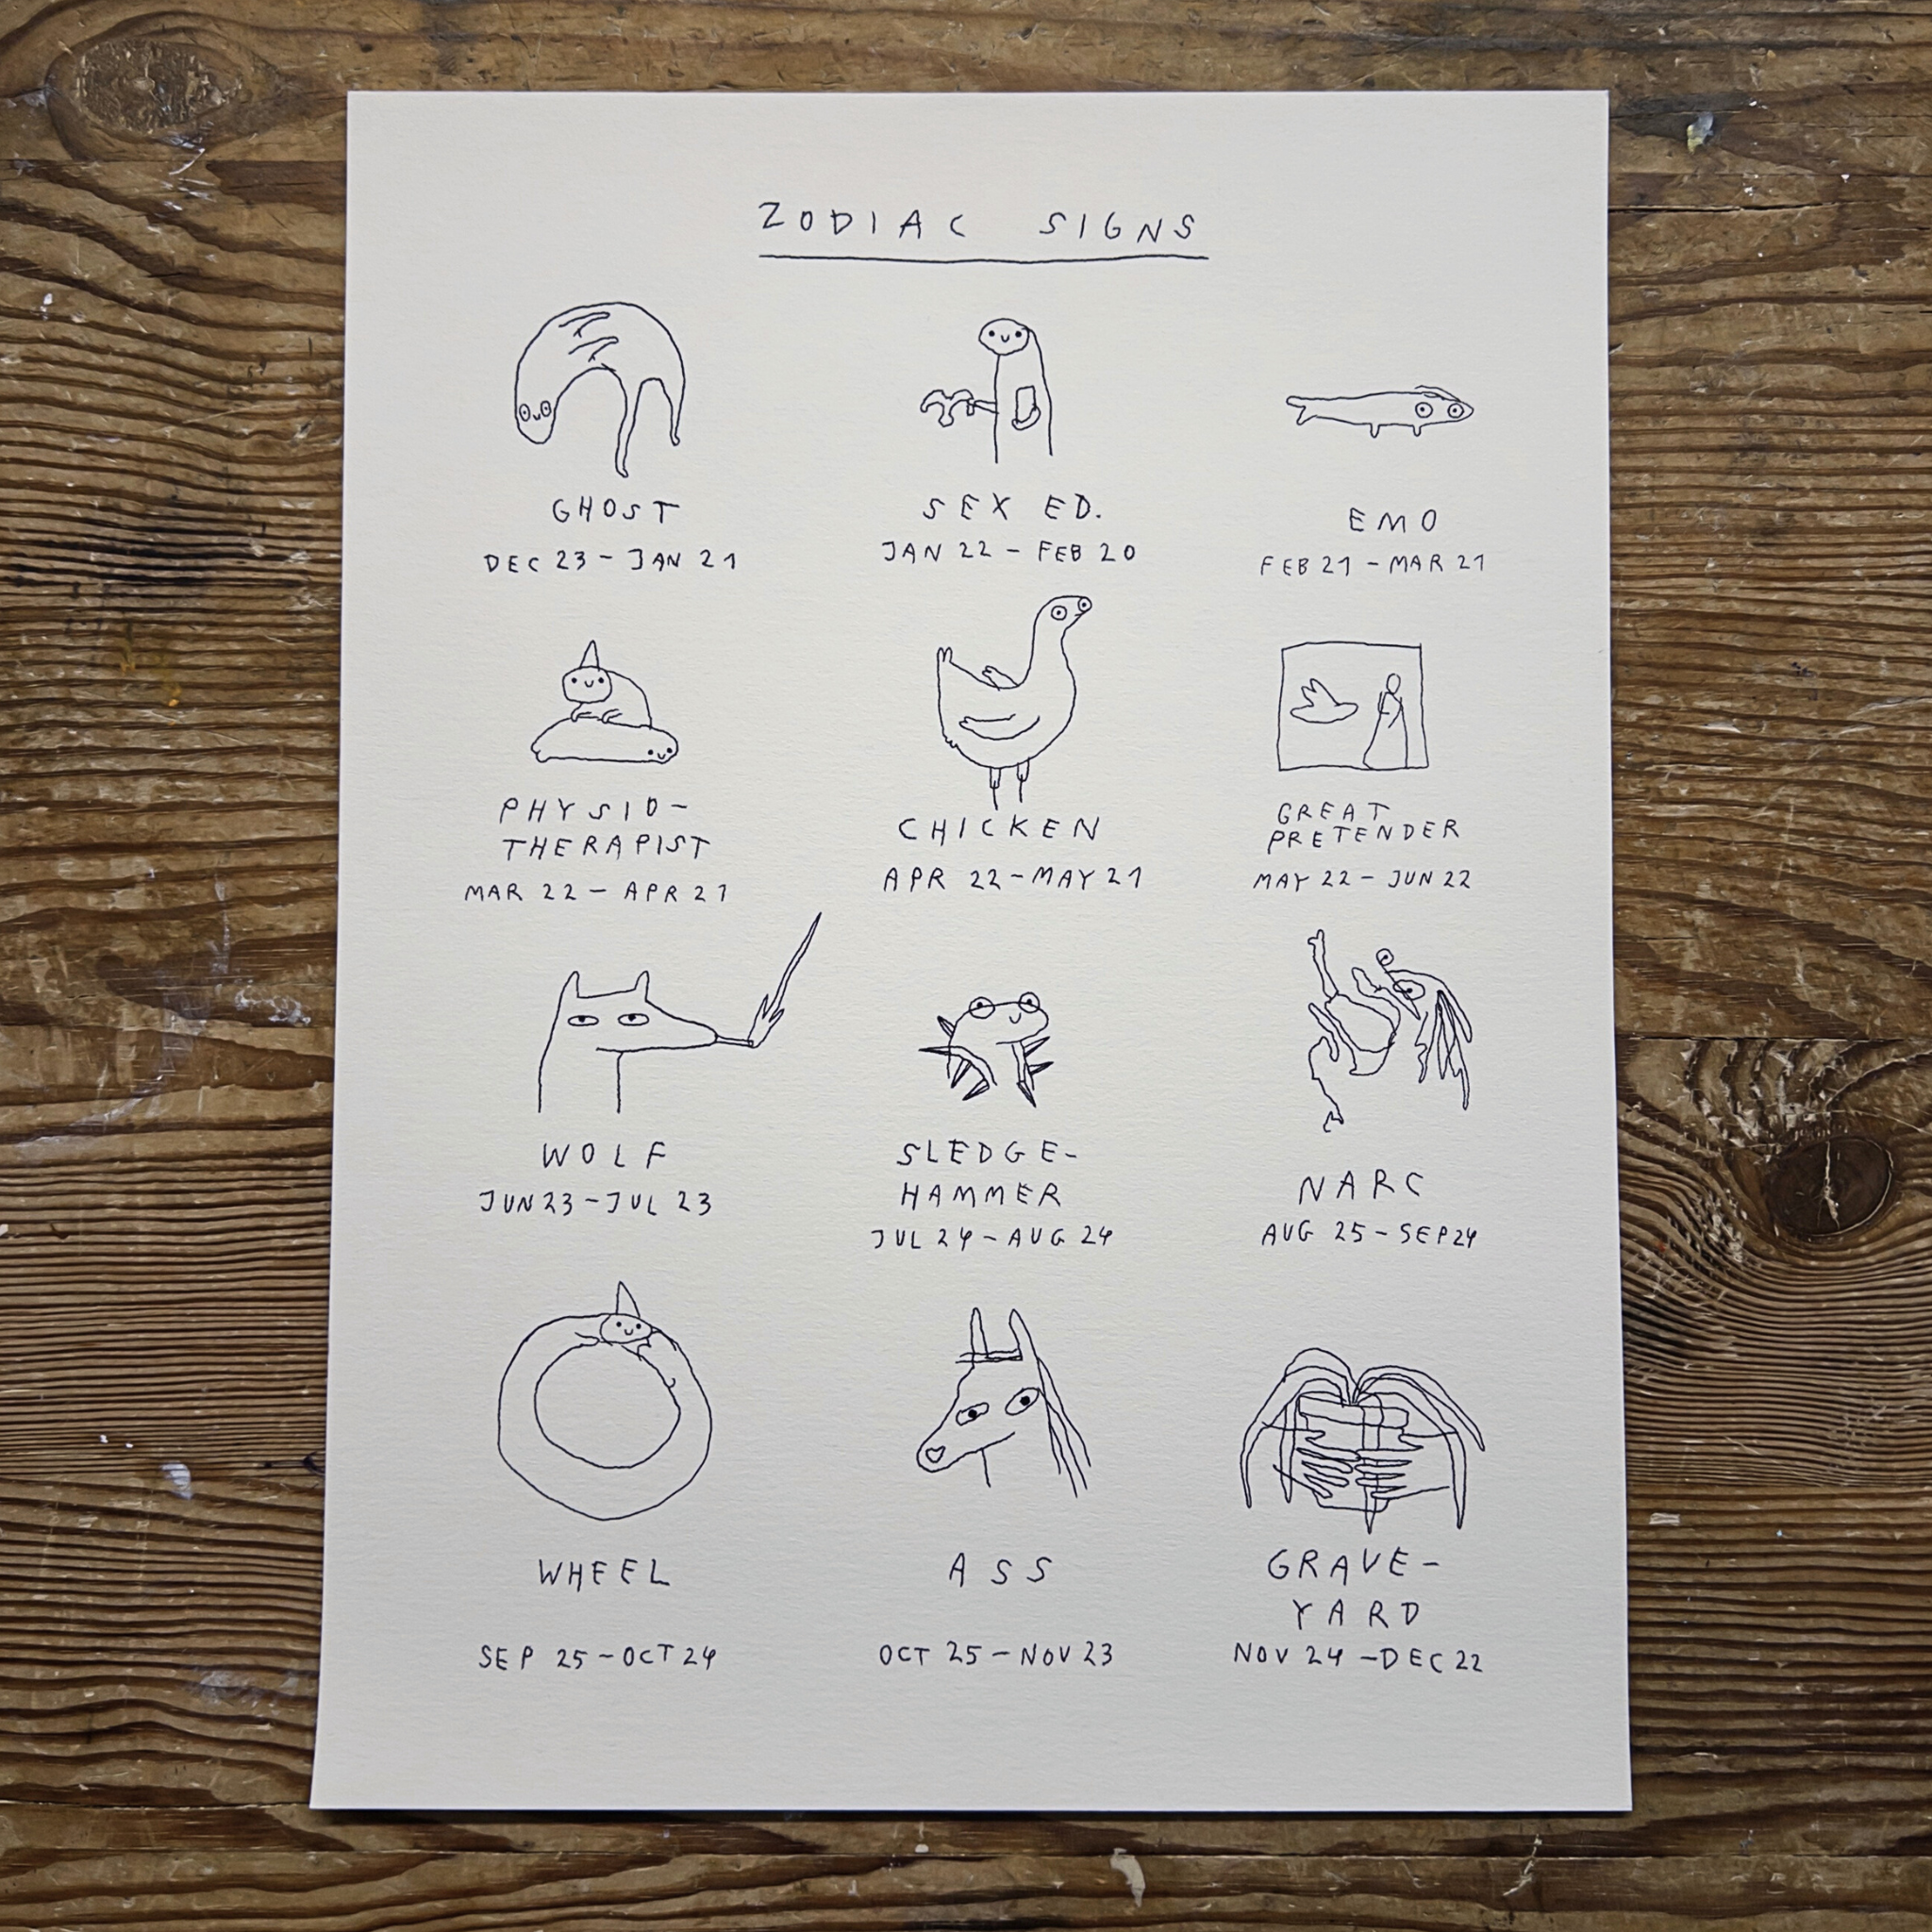 ZODIAC SIGNS
GHOST
DEC 23 - JAN 21
SEX ED.
JAN 22 - FEB 20
EMO
FEB 21 - MAR 21
PHYSIO-
THERAPIST
MAR 22 - APR 21
CHICKEN
APR 22 - MAY 21
GREAT
PRETENDER
MAY 22 - JUN 22
WOLF
JUN 23 - JUL 23
SLEDGE-
HAMMER
JUL 24 - AUG 24
NARC
AUG 25 - SEP 24
WHEEL
SEP 25 - OCT 24
ASS
OCT 25 - NOV 23
GRAVE-
YARD
NOV 24 - DEC 22